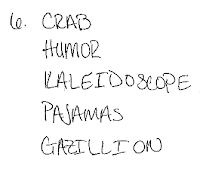 6. CRAB
HUMOR
KALEIDOSCOPE
PAJAMAS
GAZILLION